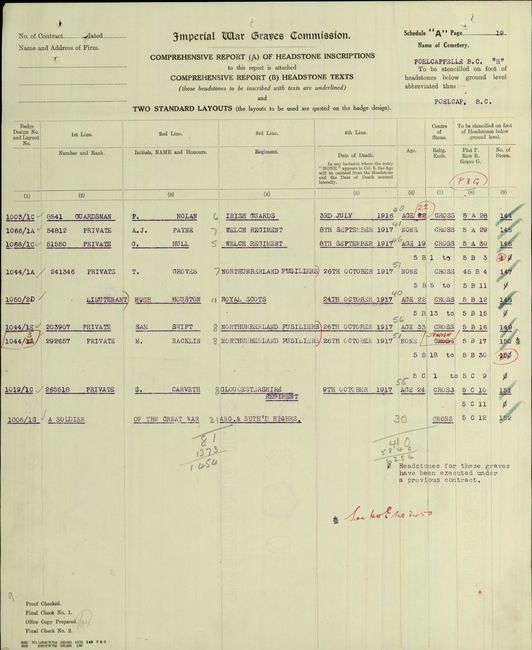 No. of Contract dated
Name and Address of Firm.
Imperial War Graves Commission.
COMPREHENSIVE REPORT (A) OF HEADSTONE INSCRIPTIONS
to this report is attached
COMPREHENSIVE REPORT (B) HEADSTONE TEXTS
(those headstones to be inscribed with texts are underlined)
and
TWO STANDARD LAYOUTS (the layouts to be used are quoted on the badge design).
Schedule "A" Page 19.
Name of Cemetery.
POELCAPPELLE B.C. "H"
To be stencilled on foot of
headstones below ground level
abbreviated thus
POELCAP, B.C.
Badge Design No. and Layout No. 1st Line. 2nd Line. 3rd Line. 4th Line. Age. Centre of Stone. To be stencilled on foot of Headstones below ground level.
Number and Rank. Initials, NAME and Honours. Regiment. Date of Death. Relig. Emb. Plot P. Row R. Grave G. No. of Stone.
In any instance where the entry "NONE" appears in Col. 6, the Age will be omitted from the Headstone and the Date of Death centred laterally.
P R G
(1) (2) (3) (4) (5) (6) (7) (8) (9)
1003/1C 8541 GUARDSMAN P. NOLAN 6 IRISH GUARDS 3RD JULY 1916 40 AGE 22 CROSS 5 A 28 144
1066/1A 54812 PRIVATE A.J. PAYNE 7 WELCH REGIMENT 8TH SEPTEMBER 1917 NONE CROSS 5 A 29 145
1066/1C 51550 PRIVATE G. HULL 5 WELCH REGIMENT 8TH SEPTEMBER 1917 AGE 19 CROSS 5 A 30 146
5 B 1 to 5 B 3 Ø
1044/1A 241346 PRIVATE T. GROVES 7 NORTHUMBERLAND FUSILIERS 26TH OCTOBER 1917 51 NONE CROSS 45 B 4 147
5 B 5 to 5 B 11 Ø
1050/2D LIEUTENANT HUGH HOUSTON 11 ROYAL SCOTS 24TH OCTOBER 1917 40 AGE 22 CROSS 5 B 12 148
5 B 13 to 5 B 15 Ø
1044/1E 203907 PRIVATE SAN SWIFT 2 NORTHUMBERLAND FUSILIERS 26TH OCTOBER 1917 56 AGE 33 CROSS 5 B 16 149
1044/1A 292657 PRIVATE M. RACKLIN 8 NORTHUMBERLAND FUSILIERS 26TH OCTOBER 1917 51 NONE CROSS 5 B 17 150
5 B 18 to 5 B 30
5 C 1 to 5 C 9 Ø
1019/1C 265518 PRIVATE S. CARVETH 8 GLOUCESTERSHIRE REGIMENT 9TH OCTOBER 1917 55 AGE 24 CROSS 5 C 10 151
5 C 11 Ø
1006/1G A SOLDIER OF THE GREAT WAR 21 ARG. & SUTH'D HIGHRS. 30 CROSS 5 C 12 152
81
1373
1454
410
5846
6256
Ø Headstones for these graves
have been executed under
a previous contract.
Proof Checked.
Final Check No. 1.
Office Copy Prepared.
Final Check No. 2.